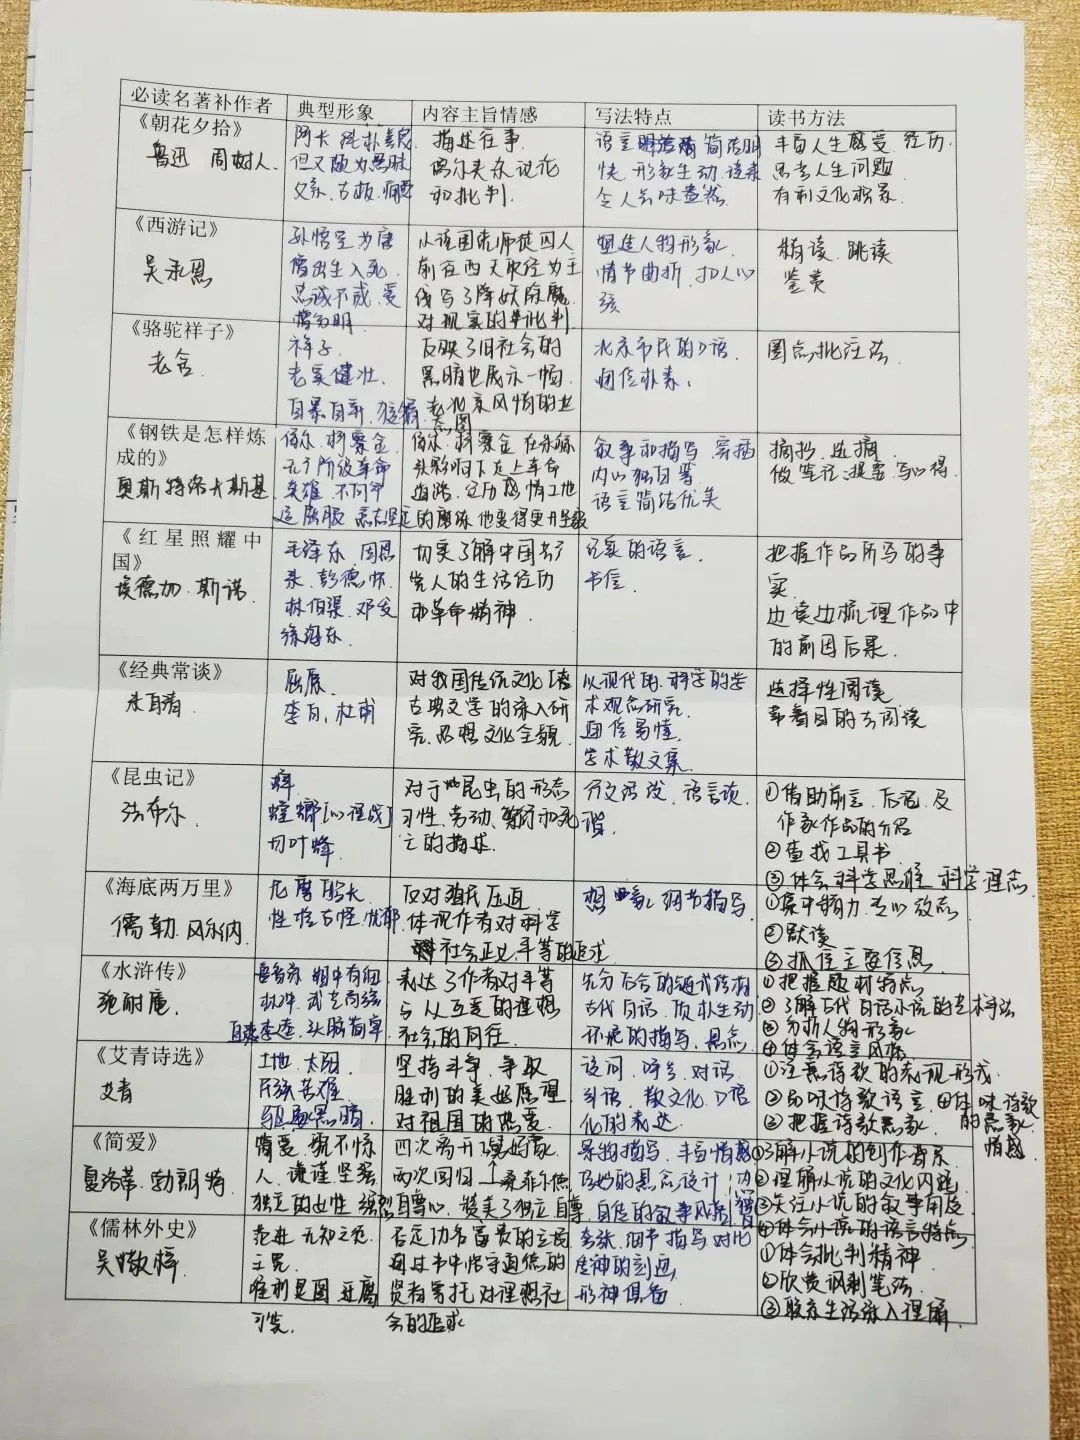 必读名著补作者 典型形象 内容主旨情感 写法特点 读书方法
《朝花夕拾》
鲁迅 周树人.
阿长 淳朴善良
但又颇为愚昧
父亲、古板、
描述往事
偶尔夹杂议论
和批判.
语言 简洁明
快 形象生动 读来
令人
丰富人生感受 经历.
思考人生问题
有利文化积累.
《西游记》
吴承恩
孙悟空 为唐
僧出生入死.
忠诚不贰、爱
憎分明.
以该国老师徒四人
前往西天取经为主
线 写了降妖除魔
对现实的批判.
塑造人物形象.
情节曲折、扣人心
弦
精读、跳读
鉴赏
《骆驼祥子》
老舍
祥子.
老实健壮.
自暴自弃.
反映了旧社会的
黑暗也展示一幅.
老北京风情的世
态图
北京市民的口语.
通俗朴素.
圈点批注法
《钢铁是怎样炼
成的》
奥斯特洛夫斯基
保尔·柯察金.
无产阶级革命
英雄、不向命
运屈服 意志坚定
保尔·柯察金 在朱赫
来影响下走上革命
道路、经历感情工地
的磨炼他变得更加坚毅
叙事和描写 穿插
内心独白等
语言简洁优美
摘抄、选摘
做笔记、提要、写心得.
《红星照耀中
国》
埃德加·斯诺.
毛泽东 周恩
来、彭德怀.
林伯渠、邓发
徐海东.
切实了解中国共产
党人的生活经历
和革命精神.
纪实的语言.
书信.
把握作品所写的事
实
边读边梳理作品中
的前因后果.
《经典常谈》
朱自清.
屈原.
李白、杜甫
对我国传统文化
古典文学的深入研
究、思想文化全貌.
以现代的、科学的学
术观念研究.
通俗易懂.
学术散文集.
选择性阅读
带着目的去阅读
《昆虫记》
法布尔.
蝉.
螳螂[心理战]
切叶蜂.
对于昆虫的形态
习性、劳动、繁衍和死
亡的描述.
行文活泼、语言诙
谐.
①借助前言、后记、及
作家作品的介绍
②查找工具书
③体会科学思维 科学理念
《海底两万里》
儒勒·凡尔纳.
尼摩船长
性格古怪、忧郁
反对殖民压迫
体现作者对科学
社会正义、平等的追求
想象 细节描写.
①集中精力、专心致志
②默读
③抓住主要信息.
《水浒传》
施耐庵.
鲁智深 粗中有细
林冲、武艺高强
李逵、头脑简单
表达了作者对平等
与人互爱的理想
社会的向往
先分后合的链式结构
古代白话、质朴生动
环境的描写、悬念.
①把握题材特点
②了解古代白话小说的艺术手法
③分析人物形象
④体会语言风格
《艾青诗选》
艾青
土地、太阳
民族苦难
驱逐黑暗
坚持斗争、争取
胜利的美好愿望
对祖国的热爱.
设问、呼告、对话
斗语、散文化、口语
化的表达
①注意诗歌的表现形式
②品味诗歌语言、④体味诗歌
③把握诗歌意象. 的意象
情感
《简爱》
夏洛蒂·勃朗特
简爱、貌不惊
人、谦谨坚强
独立的女性 自尊心.
四次离开
两次回归 桑菲尔德
赞美了独立自尊
景物描写、丰富情感
巧妙的悬念设计
自传的叙事风格
①了解小说的创作背景
②理解小说的文化内涵
③关注小说的叙事角度
④体会小说的语言特点
《儒林外史》
吴敬梓
范进 无知之冠
王冕
唯利是图 豆腐
习气.
否定功名富贵的立场
通过书中恪守道德的
贤者寄托对理想社
会的追求
夸张、细节描写对比
传神的刻画
形神俱备
①体会批判精神
②欣赏讽刺笔法
③联系生活深入理解.